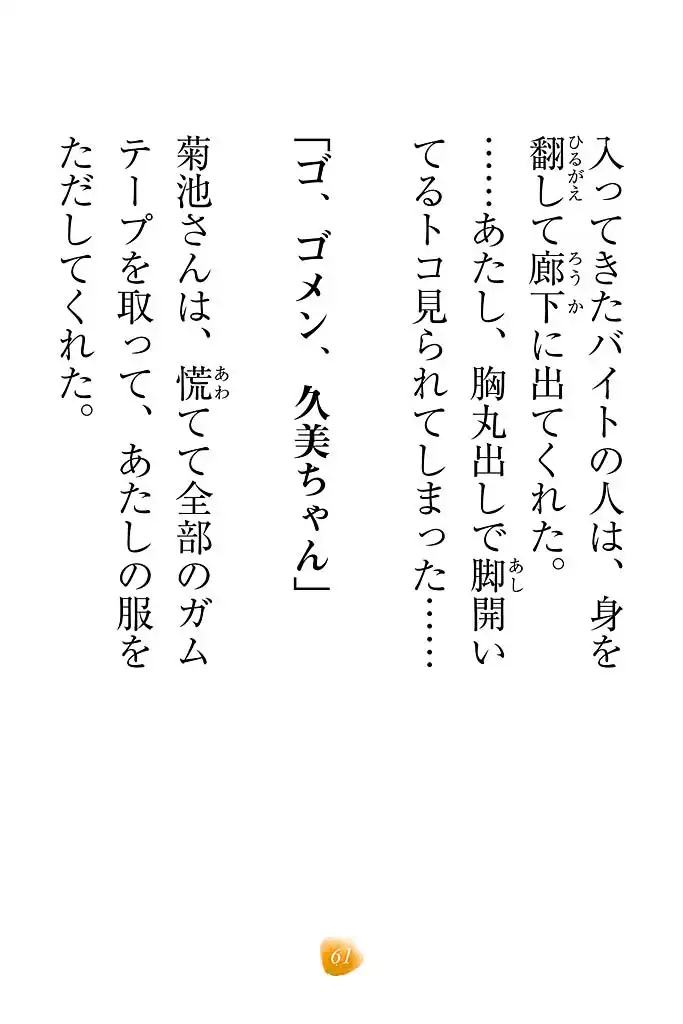 入ってきたバイトの人は、身を
翻して廊下に出てくれた。
……あたし、胸丸出しで脚開い
てるトコ見られてしまった……
「ゴ、ゴメン、久美ちゃん」
菊池さんは、慌てて全部のガム
テープを取って、あたしの服を
ただしてくれた。
ひるがえ
ろうか
あし
あわ
61